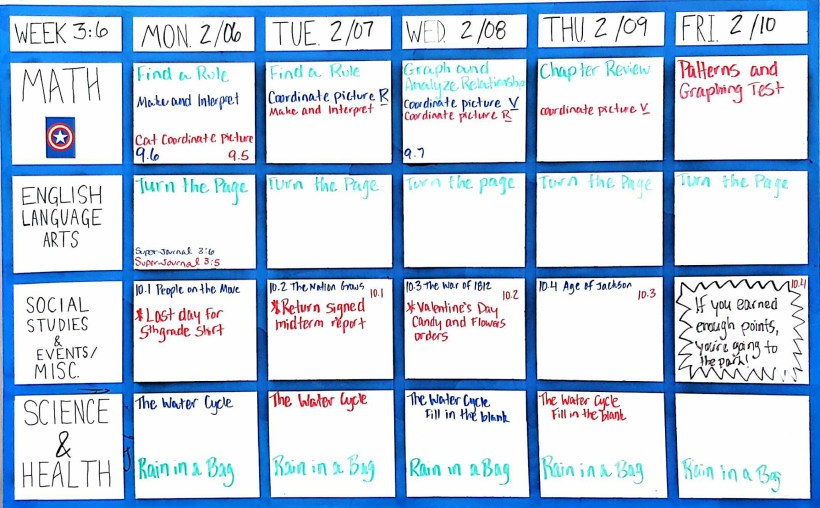 WEEK 3:6
MON. 2/06
TUE. 2/07
WED. 2/08
THU. 2/09
FRI. 2/10
MATH
Find a Rule
Make and Interpret
Cat Coordinate picture
9.6 9.5
Find a Rule
Coordinate picture R
Make and Interpret
Graph and
Analyze Relationship
Coordinate picture V
Coordinate picture R
9.7
Chapter Review
coordinate picture V
Patterns and
Graphing Test
ENGLISH
LANGUAGE
ARTS
Turn the Page
Super-Journal 3:6
Super-Journal 3:5
Turn the Page
Turn the page
Turn the Page
Turn the Page
SOCIAL
STUDIES
&
EVENTS/
MISC.
10.1 People on the Move
* Last day for
5thgrade shirt
10.2 The Nation Grows
10.1
* Return signed
midterm report
10.3 The War of 1812
10.2
* Valentine's Day
Candy and Flowers
orders
10.4 Age of Jackson
10.3
10.4
If you earned
enough points,
you're going to
the park!
SCIENCE
&
HEALTH
The Water Cycle
Rain in a Bag
The Water Cycle
Rain in a Bag
The Water Cycle
Fill in the blank
Rain in a Bag
The Water Cycle
Fill in the blank
Rain in a Bag
Rain in a Bag